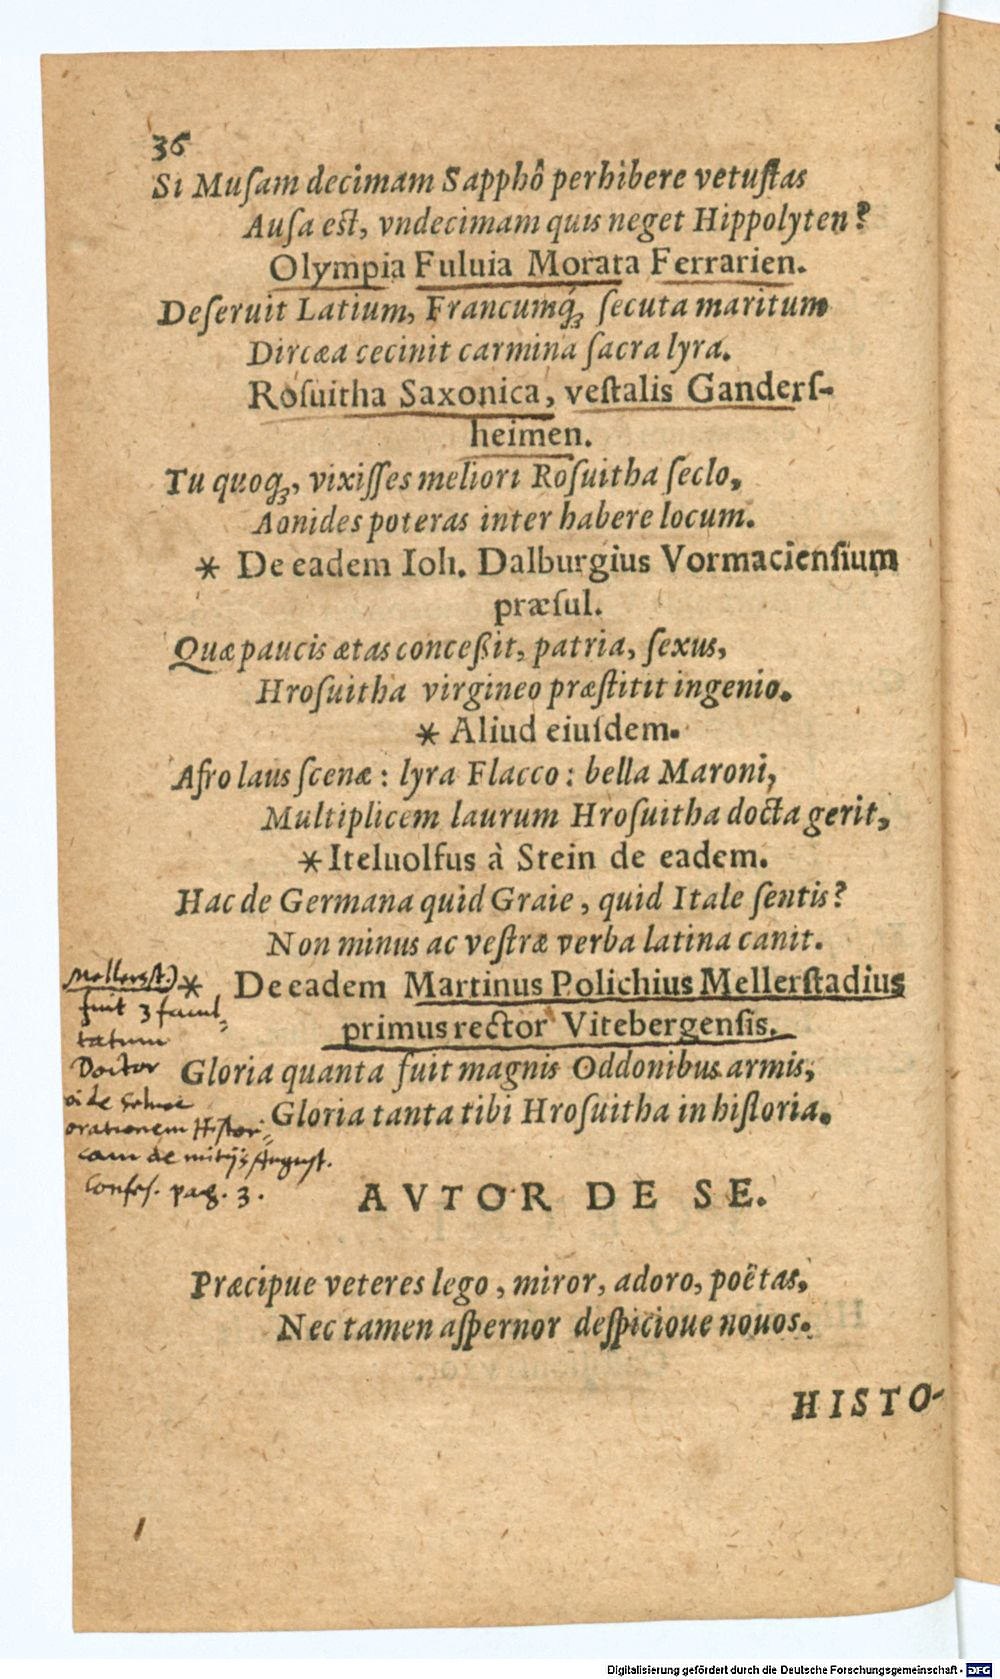 36
Si Muſam decimam Sapphô perhibere vetuſtas
Auſa eſt, vndecimam quis neget Hippolyten?
Olympia Fuluia Morata Ferrarien.
Deſeruit Latium, Francumq́ꝫ ſecuta maritum
Dircæa cecinit carmina ſacra lyra.
Roſuitha Saxonica, veſtalis Ganderſ-
heimen.
Tu quoqꝫ, vixiſſes meliori Roſuitha ſeclo,
Aonides poteras inter habere locum.
* De eadem Ioh. Dalburgius Vormacienſium
præſul.
Quæ paucis ætas conceßit, patria, ſexus,
Hroſuitha virgineo præſtitit ingenio.
* Aliud eiuſdem.
Afro laus ſcenæ: lyra Flacco: bella Maroni,
Multiplicem laurum Hroſuitha docta gerit,
* Iteluolfus à Stein de eadem.
Hac de Germana quid Graie, quid Itale ſentis?
Non minus ac veſtræ verba latina canit.
* De eadem Martinus Polichius Mellerſtadius
primus rector Vitebergenſis.
Gloria quanta fuit magnis Oddonibus armis,
Gloria tanta tibi Hroſuitha in hiſtoria.
Mellerst.)
fuit 3 facul-
tatum
Doctor
orationem Histori-
cam de initijs August.
Confes. pag. 3.
AVTOR DE SE.
Præcipue veteres lego, miror, adoro, poëtas,
Nec tamen aſpernor deſpicioue nouos.
HISTO-
Digitalisierung gefördert durch die Deutsche Forschungsgemeinschaft - DFG